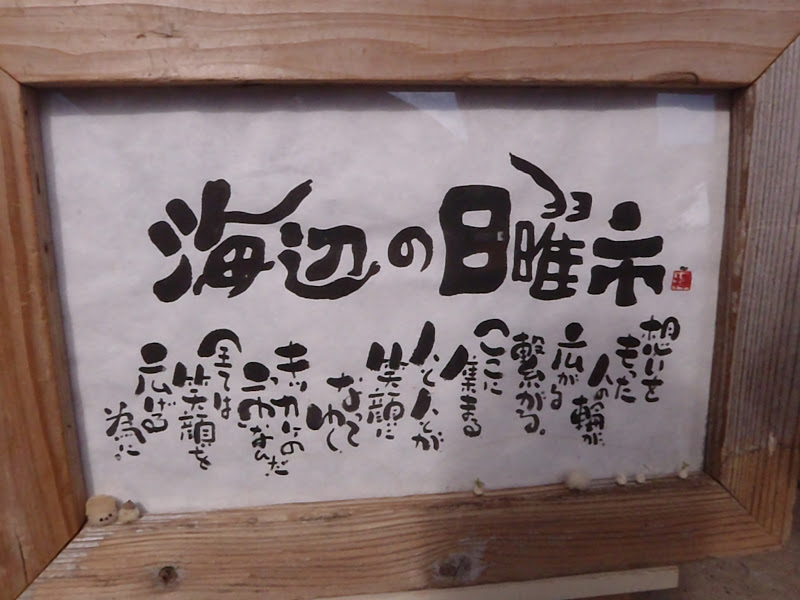 海辺の日曜市
想いを
もった
人の輪が
広がる
繋がる。
ここに
人集まる
人と人とが
笑顔に
なって
ゆく
キッカケの
「市」なんだ
全ては
笑顔を
広げる
為に。